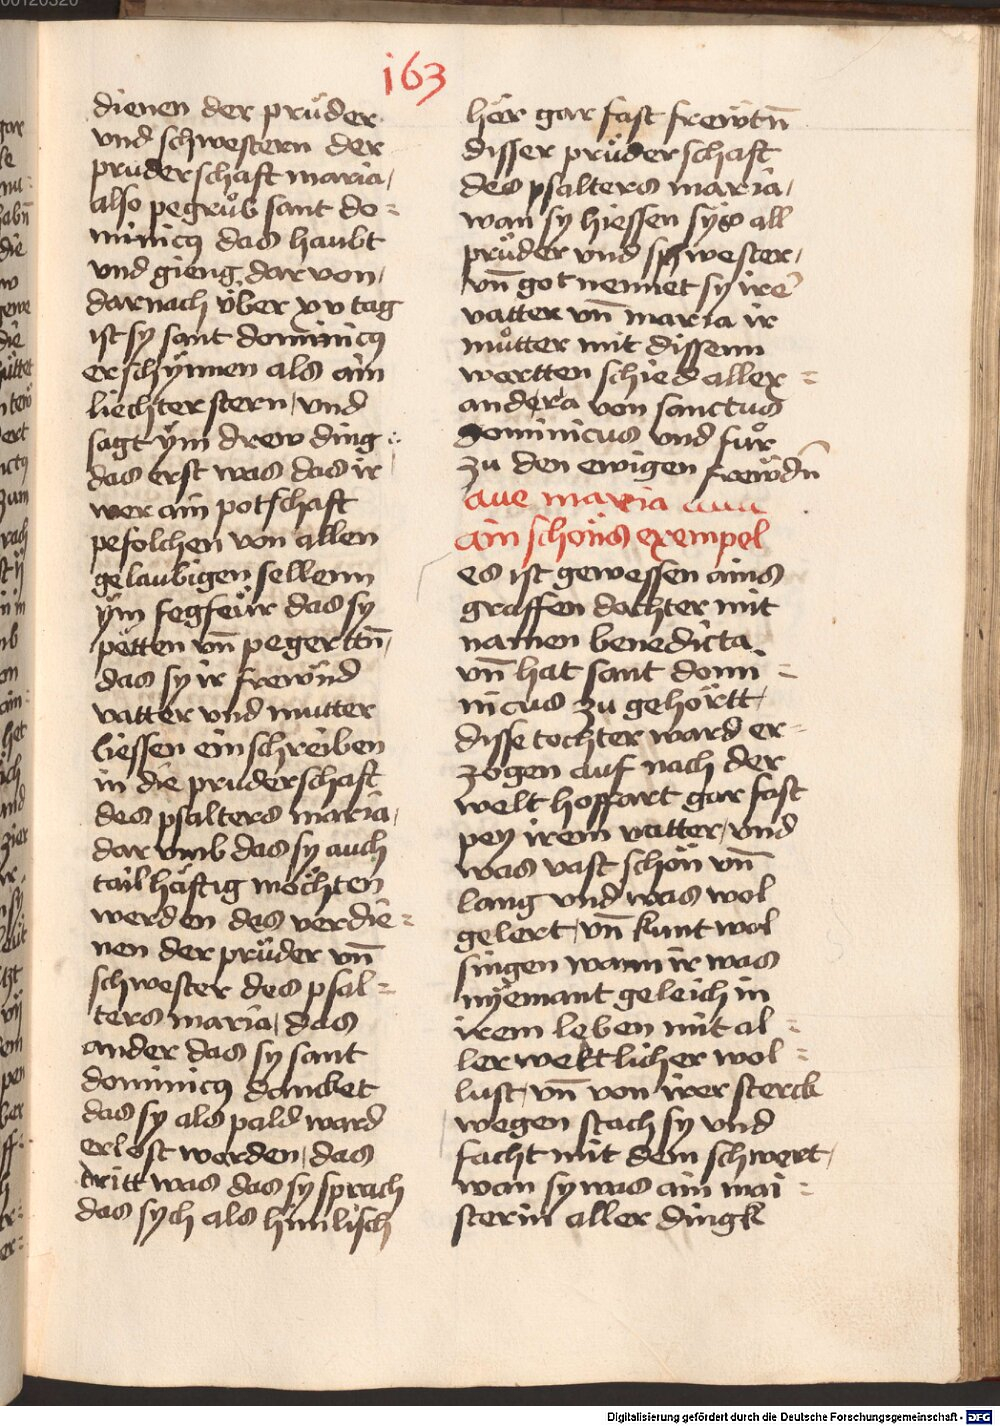 163
dienen der prüder
vnd schwestern der
pruderschafft maria /
also pegrůb sant do=
minicus das haubt
vnd gieng dar von /
darnach über xv tag
ist sy sant dominicus
erschynnen als ain
liechter stern / vnd
sagt ÿm drew ding :
das erst was das ir
wer ain potschaft
pefolchen von allen
gelaubigen sellenn
ÿm fegfeür das sy
petten vn̄ pegerttn̄ /
das sy ir frewnd
vatter vnd mutter
liessen einschreiben
in die pruderschaft
des psalters maria /
dar vmb das sy auch
tailhäftig möchten
werden des verdie=
nen der prüder vn̄
schwester des psal=
ters maria / das
ander das sy sant
dominicus dancket
das sy als pald ward
erlöst worden / das
tritt was das sy sprach
das sych als himlisch
hër gar fast frewtn̄
disser prüderschaft
des psalters maria /
wan sy hiessen sych all
prüder vnd schwester /
vn̄ got nennet sy irē
vatter vn̄ maria ir
můtter mit dissenn
wortten schied aller=
andera von sanctus
dominicus vnd fůr
zu den ewigen frewdn̄
aue maria
ain schöns exempel
es ist gewessen ains
graffen dochter mit
namen benedicta
vn̄ hat sant domi=
nicus zu gehörtt /
disse tochter ward er=
zogen auf nach der
welt hoffart gar fast
pey irem vatter / vnd
was vast schön vn̄
lang vnd was wol
gelert / vn̄ kunt wol
singen wann ir was
nÿemant geleich in
irem leben mit al=
ler weltlicher wol=
lust / vn̄ von irer sterck
wegen stach sy vnd
facht mit dem schwert /
wan sy was ain mai=
sterin aller dingk
Digitalisierung gefördert durch die Deutsche Forschungsgemeinschaft - DFG